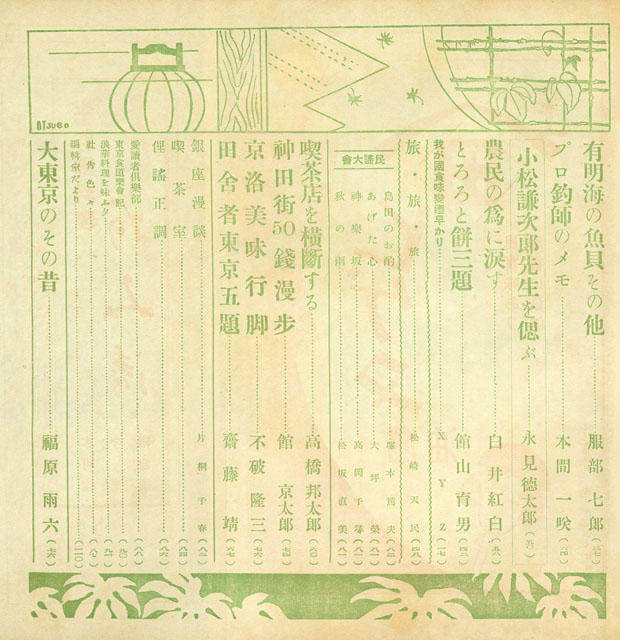 OTSUBO
有明海の魚貝その他 服部七郎
プロ釣師のメモ 本間一咲
小松謙次郎先生を偲ぶ 永見徳太郎
農民の爲に涙す 白井紅白
とろろと餅三題 館山育男
我が國食味變遷早かり XYZ
旅・旅・旅 松崎天民
民謠大會
島田のお酌 塚本篤夫
あげた心 大坪
神樂坂 高岡千
秋の雨 松坂直美
喫茶店を横斷する 高橋邦太郎
神田街50錢漫歩 館 京太郎
京洛美味行脚 不破隆三
田舍者東京五題 齋藤靖
銀座漫談 片桐千春
喫茶室
俚謠正調
愛讀者倶樂部
東京食道樂會記
浪華料理を味ふ夕
社告色々
編輯室だより
大東京のその昔 福原雨六